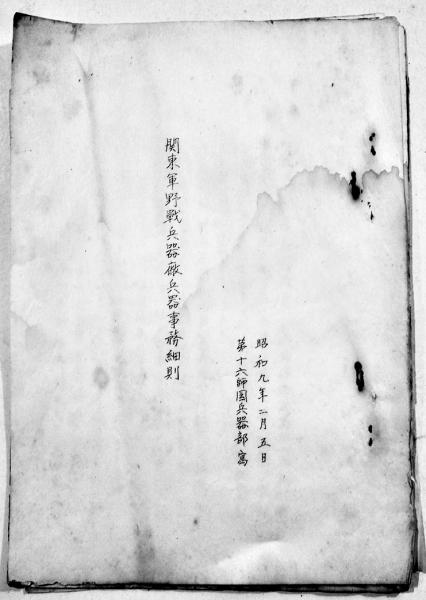 昭和九年二月五日
第十六師団兵器部寫
関東軍野戰兵器廠兵器事務細則